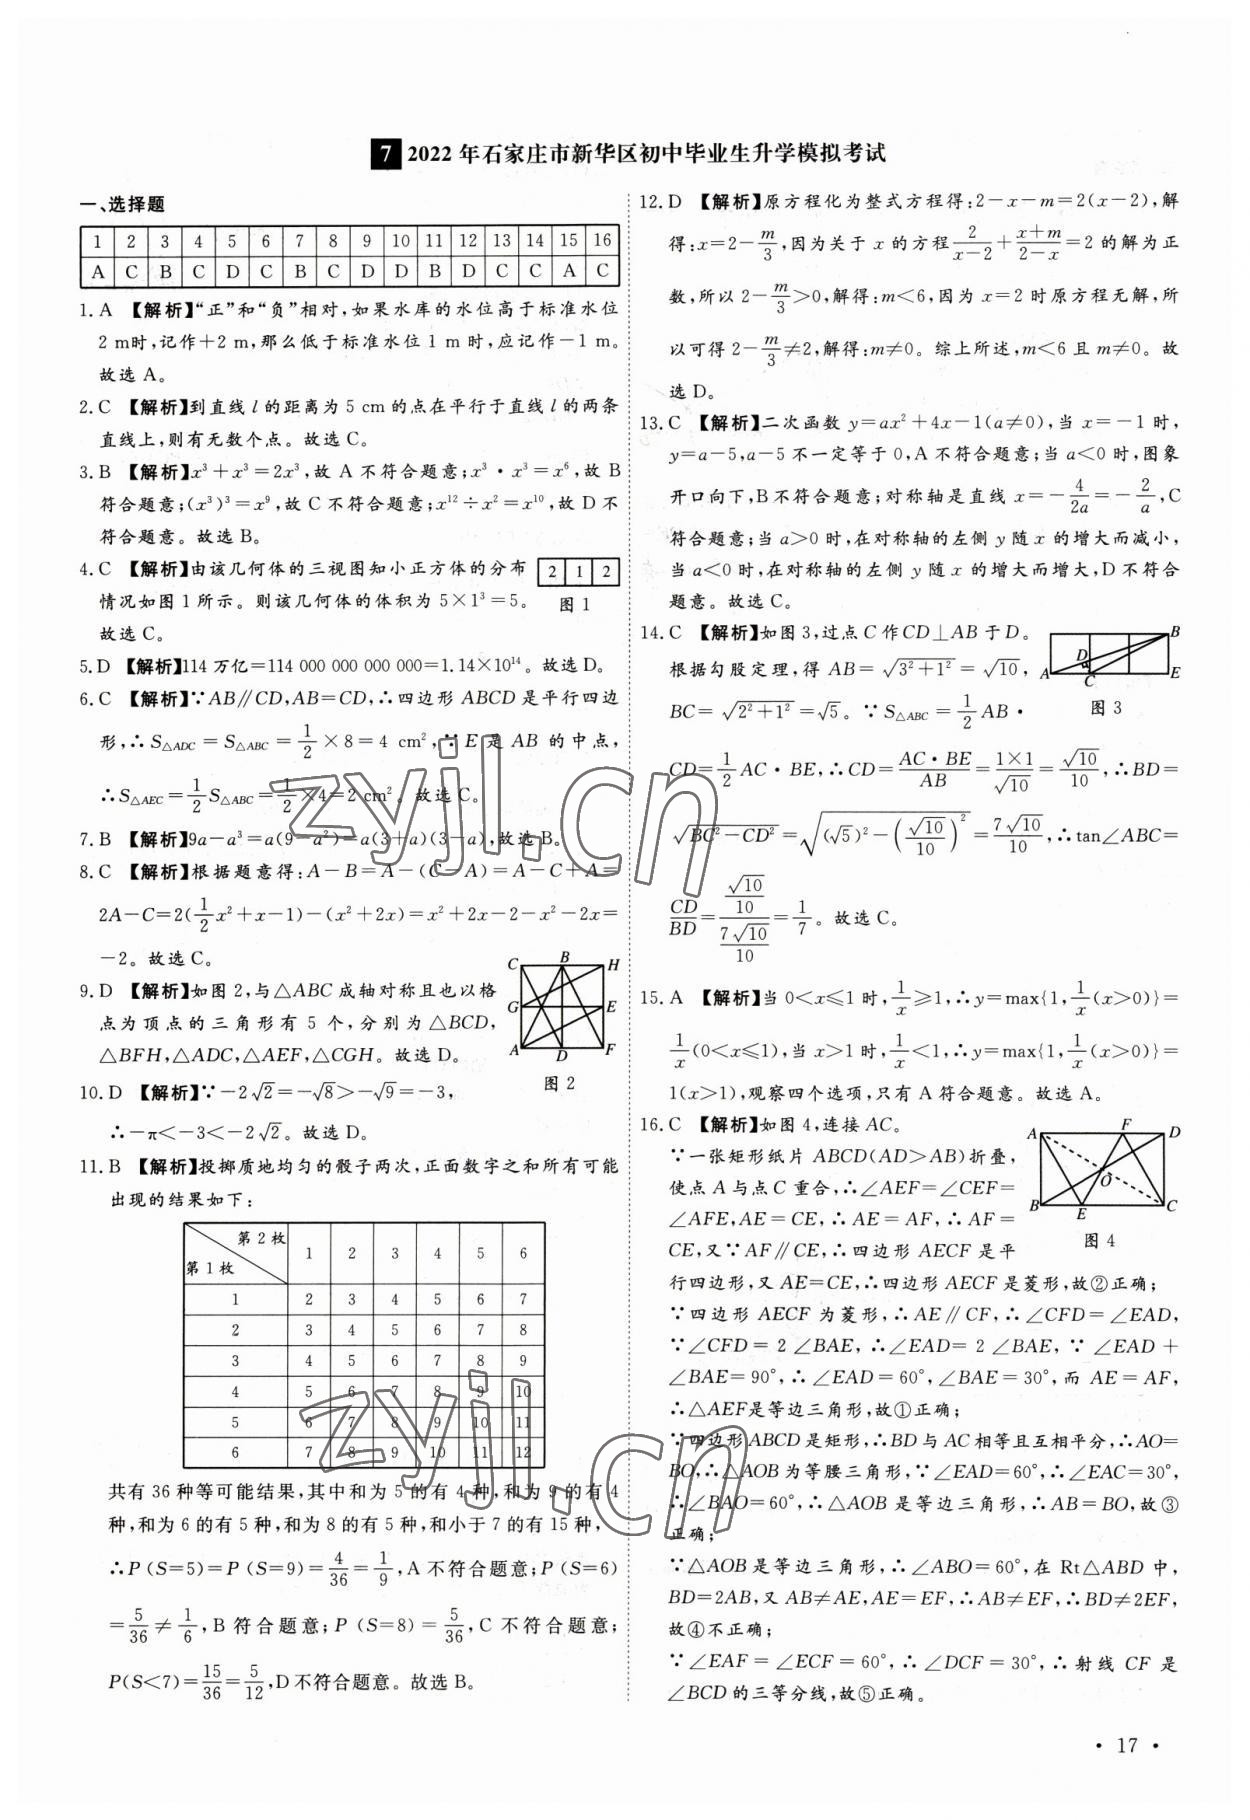 7 2022年石家庄市新华区初中毕业生升学模拟考试
一、选择题
1 2 3 4 5 6 7 8 9 10 11 12 13 14 15 16
A C B C D C B C D D B D C C A C
1. A 【解析】“正”和“负”相对,如果水库的水位高于标准水位
2 m时,记作+2 m,那么低于标准水位1 m时,应记作-1 m。
故选A。
2. C 【解析】到直线l的距离为5 cm的点在平行于直线l的两条
直线上,则有无数个点。故选C。
3. B 【解析】x³+x³=2x³,故A不符合题意;x³·x³=x⁶,故B
符合题意;(x³)³=x⁹,故C不符合题意;x¹²÷x²=x¹⁰,故D不
符合题意。故选B。
4. C 【解析】由该几何体的三视图知小正方体的分布
情况如图1所示。则该几何体的体积为5×1³=5。
故选C。
2 1 2
图1
5. D 【解析】114万亿=114 000 000 000 000=1.14×10¹⁴。故选D。
6. C 【解析】∵AB∥CD,AB=CD,∴四边形ABCD是平行四边
形,∴S△ADC=S△ABC=1/2×8=4 cm²,∵E是AB的中点,
∴S△AEC=1/2S△ABC=1/2×4=2 cm²。故选C。
7. B 【解析】9a-a³=a(9-a²)=a(3+a)(3-a),故选B。
8. C 【解析】根据题意得:A-B=A-(C-A)=A-C+A=
2A-C=2(1/2x²+x-1)-(x²+2x)=x²+2x-2-x²-2x=
-2。故选C。
9. D 【解析】如图2,与△ABC成轴对称且也以格
点为顶点的三角形有5个,分别为△BCD,
△BFH,△ADC,△AEF,△CGH。故选D。
C B H
G E
A D F
图2
10. D 【解析】∵-2√2=-√8>-√9=-3,
∴-π<-3<-2√2。故选D。
11. B 【解析】投掷质地均匀的骰子两次,正面数字之和所有可能
出现的结果如下:
第2枚
第1枚 1 2 3 4 5 6
1 2 3 4 5 6 7
2 3 4 5 6 7 8
3 4 5 6 7 8 9
4 5 6 7 8 9 10
5 6 7 8 9 10 11
6 7 8 9 10 11 12
共有36种等可能结果,其中和为5的有4种,和为9的有4
种,和为6的有5种,和为8的有5种,和小于7的有15种,
∴P(S=5)=P(S=9)=4/36=1/9,A不符合题意;P(S=6)
=5/36≠1/6,B符合题意;P(S=8)=5/36,C不符合题意;
P(S<7)=15/36=5/12,D不符合题意。故选B。
12. D 【解析】原方程化为整式方程得:2-x-m=2(x-2),解
得:x=2-m/3,因为关于x的方程2/(x-2)+(x+m)/(2-x)=2的解为正
数,所以2-m/3>0,解得:m<6,因为x=2时原方程无解,所
以可得2-m/3≠2,解得:m≠0。综上所述,m<6且m≠0。故
选D。
13. C 【解析】二次函数y=ax²+4x-1(a≠0),当x=-1时,
y=a-5,a-5不一定等于0,A不符合题意;当a<0时,图象
开口向下,B不符合题意;对称轴是直线x=-4/2a=-2/a,C
符合题意;当a>0时,在对称轴的左侧y随x的增大而减小,
当a<0时,在对称轴的左侧y随x的增大而增大,D不符合
题意。故选C。
14. C 【解析】如图3,过点C作CD⊥AB于D。
根据勾股定理,得AB=√(3²+1²)=√10,
BC=√(2²+1²)=√5。∵S△ABC=1/2AB·
B
D
A C E
图3
CD=1/2AC·BE,∴CD=AC·BE/AB=1×1/√10=√10/10,∴BD=
√(BC²-CD²)=√((√5)²-(√10/10)²)=7√10/10,∴tan∠ABC=
CD/BD=(√10/10)/(7√10/10)=1/7。故选C。
15. A 【解析】当0<x≤1时,1/x≥1,∴y=max{1,1/x(x>0)}=
1/x(0<x≤1),当x>1时,1/x<1,∴y=max{1,1/x(x>0)}=
1(x>1),观察四个选项,只有A符合题意。故选A。
16. C 【解析】如图4,连接AC。
∵一张矩形纸片ABCD(AD>AB)折叠,
使点A与点C重合,∴∠AEF=∠CEF=
∠AFE,AE=CE,∴AE=AF,∴AF=
CE,又∵AF∥CE,∴四边形AECF是平
A F D
O
B E C
图4
行四边形,又AE=CE,∴四边形AECF是菱形,故②正确;
∵四边形AECF为菱形,∴AE∥CF,∴∠CFD=∠EAD,
∵∠CFD=2∠BAE,∴∠EAD=2∠BAE,∵∠EAD+
∠BAE=90°,∴∠EAD=60°,∠BAE=30°,而AE=AF,
∴△AEF是等边三角形,故①正确;
∵四边形ABCD是矩形,∴BD与AC相等且互相平分,∴AO=
BO,∴△AOB为等腰三角形,∵∠EAD=60°,∴∠EAC=30°,
∴∠BAO=60°,∴△AOB是等边三角形,∴AB=BO,故③
正确;
∵△AOB是等边三角形,∴∠ABO=60°,在Rt△ABD中,
BD=2AB,又AB≠AE,AE=EF,∴AB≠EF,∴BD≠2EF,
故④不正确;
∵∠EAF=∠ECF=60°,∴∠DCF=30°,∴射线CF是
∠BCD的三等分线,故⑤正确。
zyjl.cn
zyjl.cn
· 17 ·